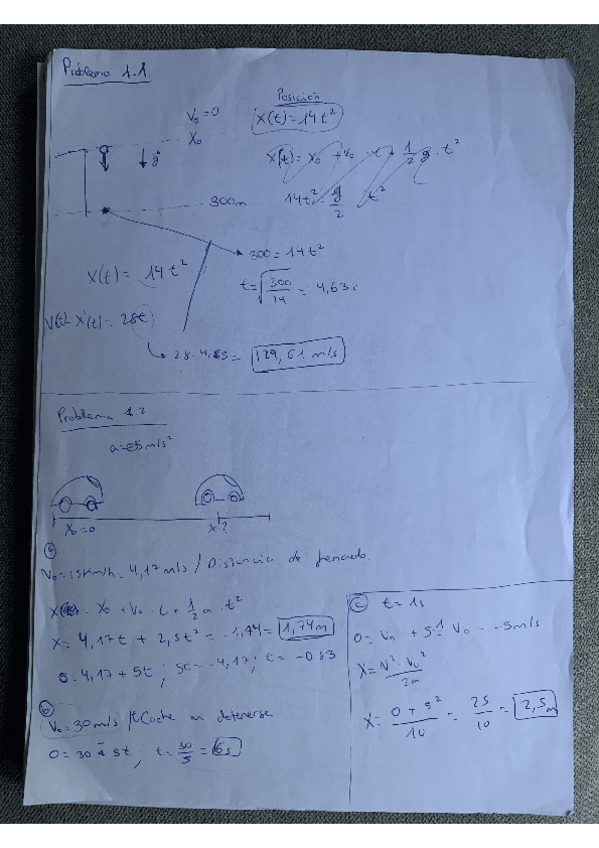 Problema 1.1.
Posición
V₀ = 0
X(t) = 14t²
X₀
g
X(t) = X₀ + V₀ · t + 1/2 g · t²
300m
14t² = g/2 t²
300 = 14t²
X(t) = 14t²
t = √(300/14) = 4,63s
V(t) = X'(t) = 28t
28 · 4,63 = 129,61 m/s
Problema 1.2
a = -5 m/s²
X₀ = 0
x?
a
V₀ = 15km/h = 4,17 m/s / Distancia de frenado
X(t) = X₀ + V₀ · t + 1/2 a · t²
X = 4,17t + 2,5t² = -1,74 = 1,74m
0 = 4,17 + 5t ; 5t = -4,17 ; t = -0.83
b
V₀ = 30 m/s / t Coche en detenerse
0 = 30 - 5t ; t = 30/5 = 6s
c t = 1s
0 = V₀ + 5·1 V₀ = -5m/s
X = V² - V₀² / 2a
X = 0 + 5² / 10 = 25/10 = 2,5m